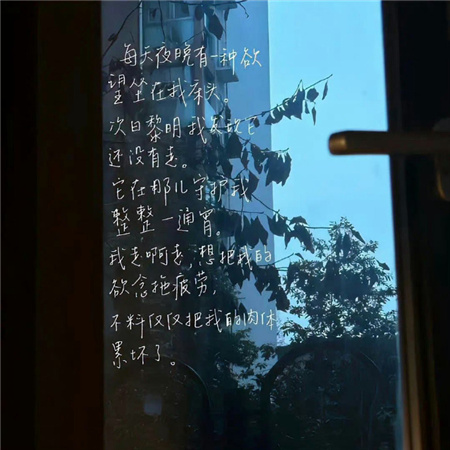 每天夜晚有一种欲
望坐在我床头。
次日黎明我发现它
还没有走。
它在那儿守护我
整整一通宵。
我走啊走，想把我的
欲念拖疲劳，
不料仅仅把我的肉体
累坏了。